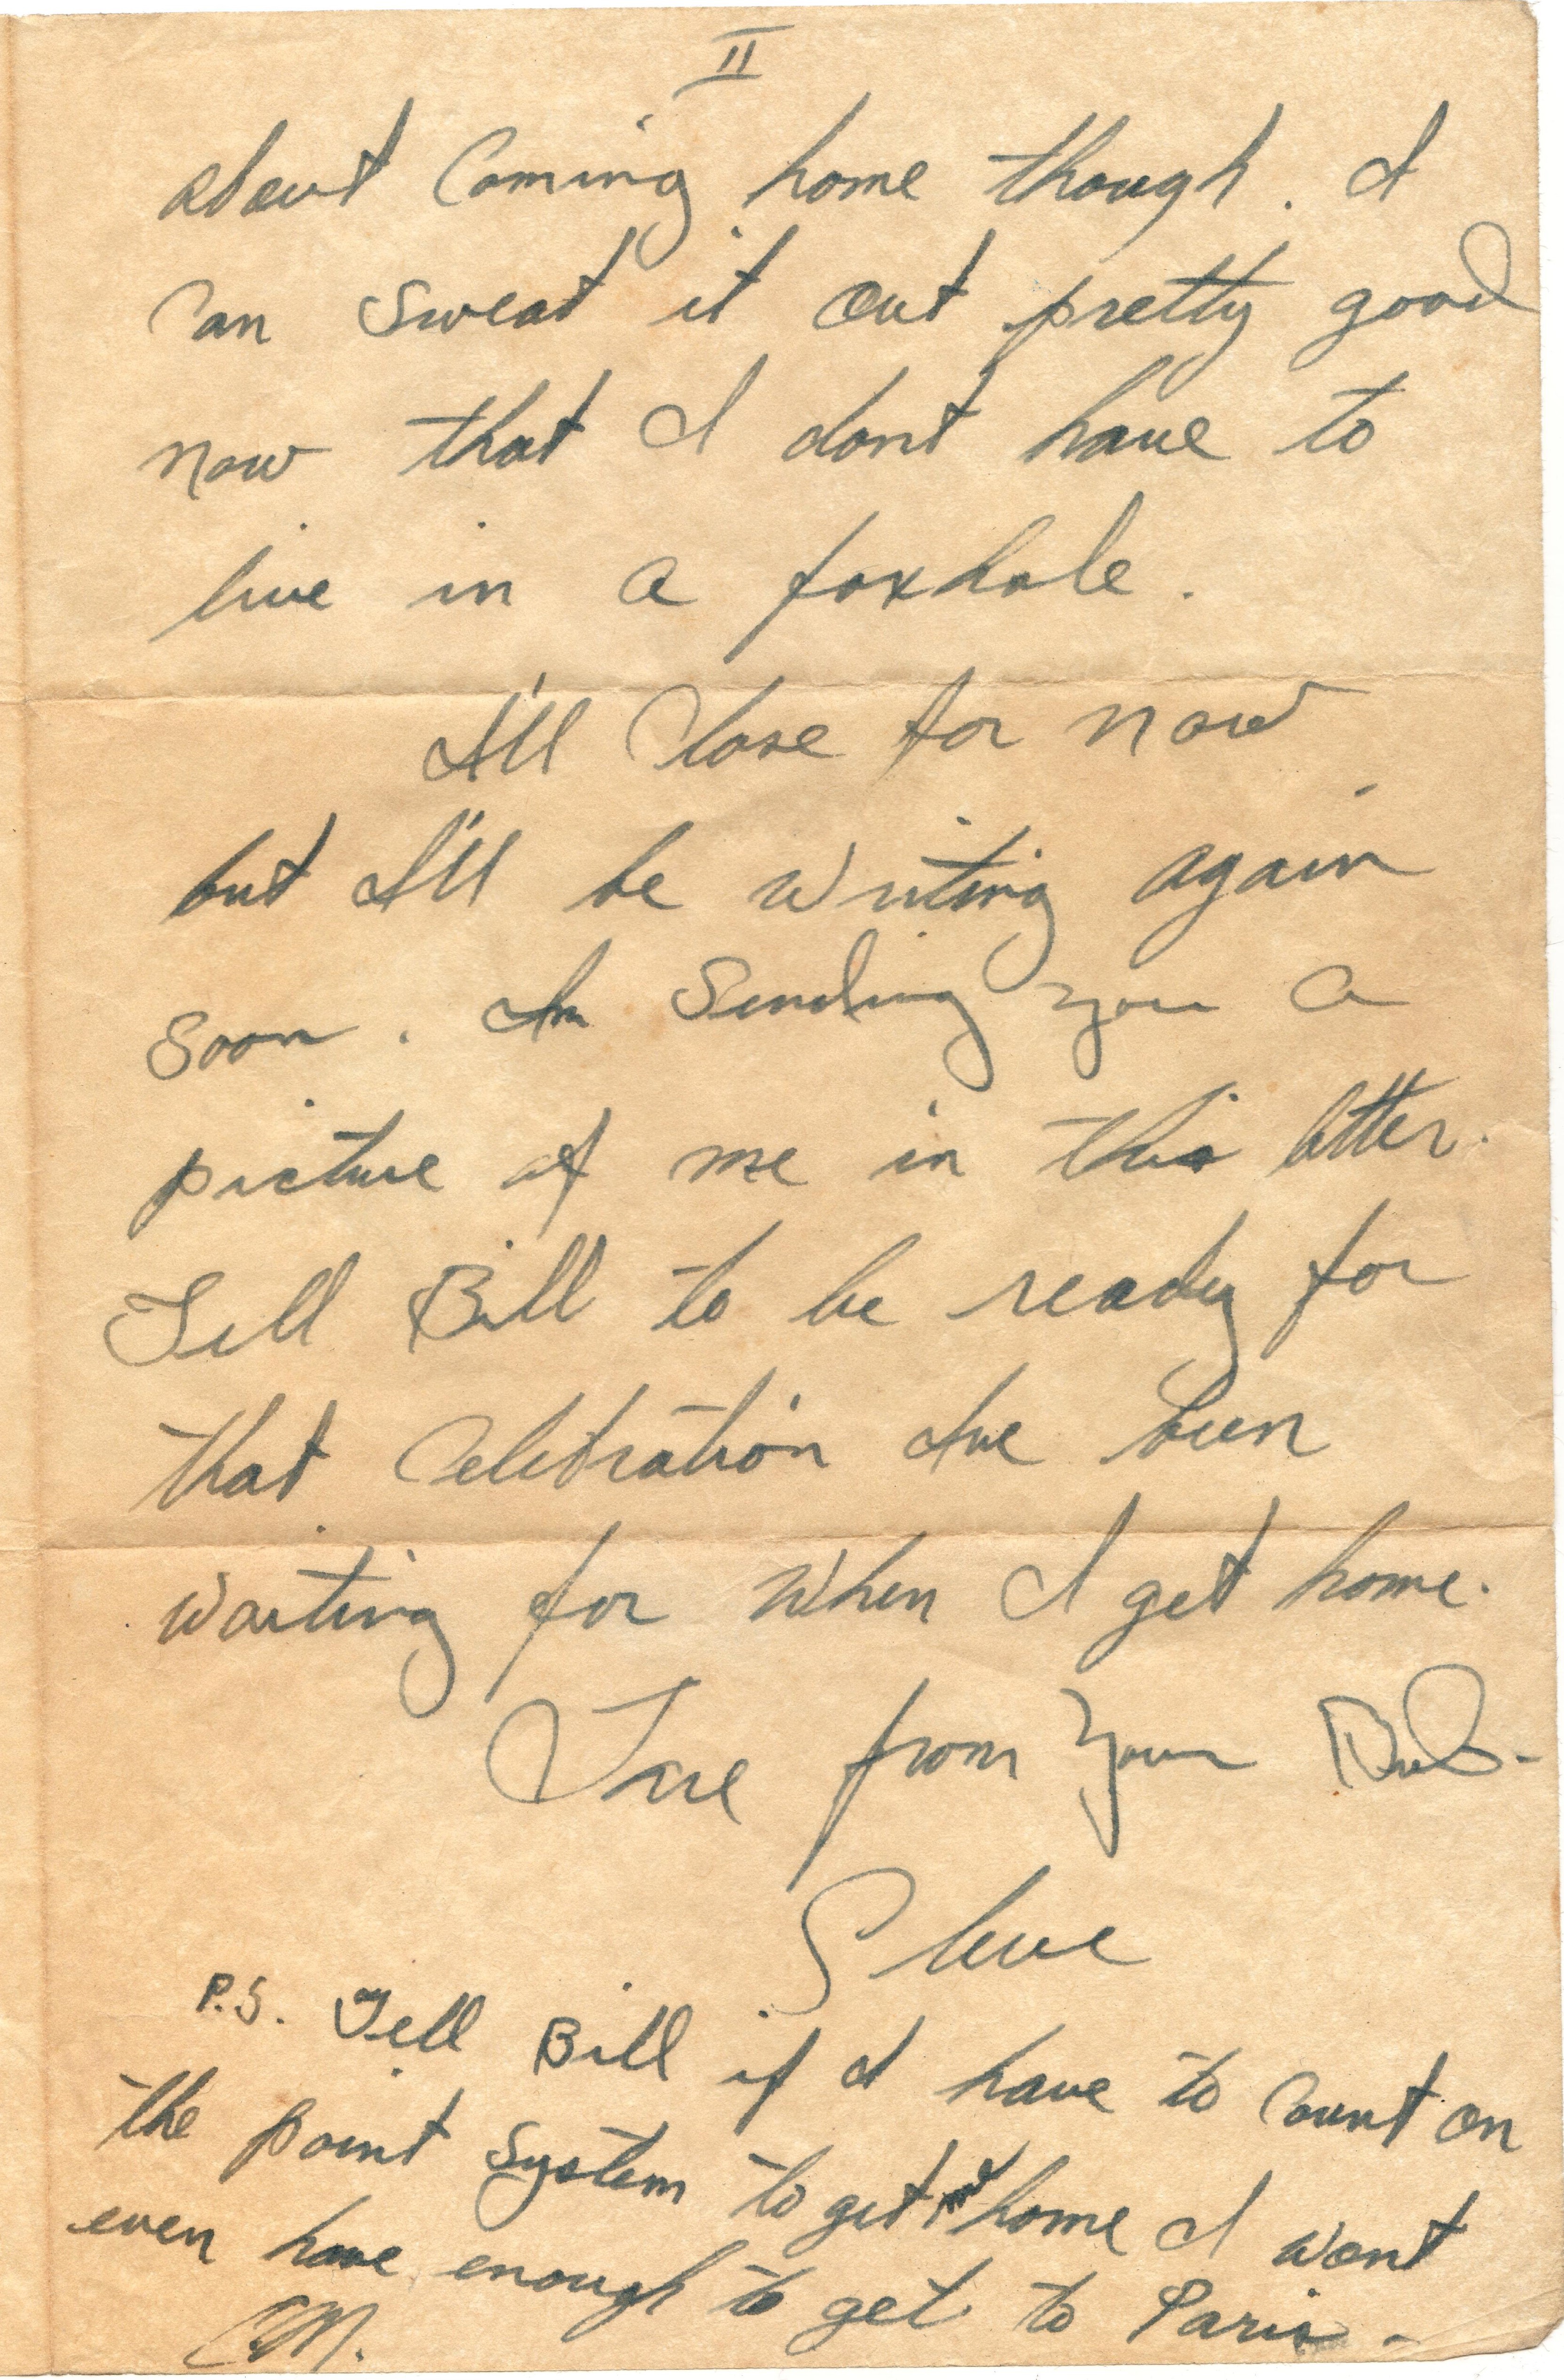 II
about Coming home though. I
Can sweat it out pretty good
now that I dont have to
live in a foxhole.
I'll Close for now
but I'll be writing again
soon. Im Sending you a
picture of me in this letter.
Tell Bill to be ready for
that Celebration Ive been
waiting for when I get home.
Love from Your Bud-
Steve
P.S. Tell Bill if I have to Count on
the point system to get home I wont
even have enough to get to Paris-